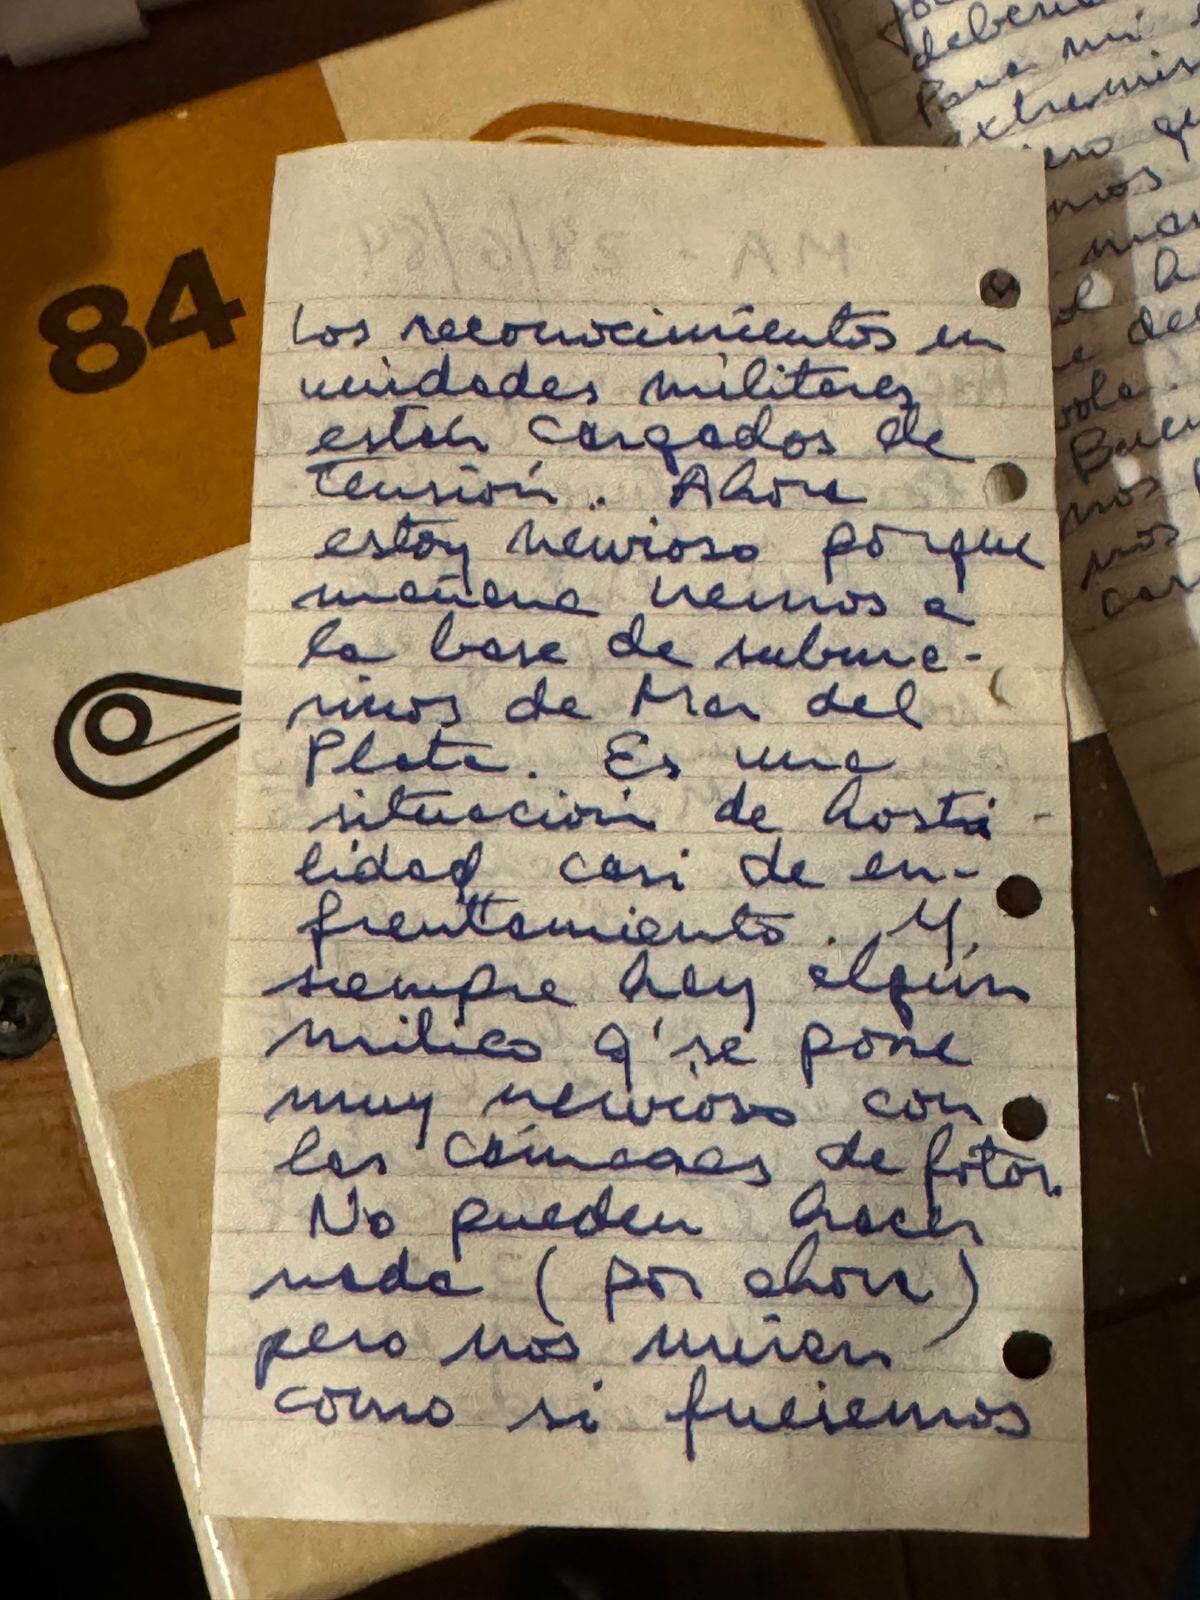 84
Los reconocimientos en
unidades militares
están cargados de
tensión. Ahora
estoy nervioso porque
mañana iremos a
la base de subma-
rinos de Mar del
Plata. Es una
situación de hosti-
lidad casi de en-
frentamiento. Y
siempre hay algún
milico q' se pone
muy nervioso con
las cámaras de fotos.
No pueden hacer
nada (por ahora)
pero nos miran
como si fuésemos
Para mi